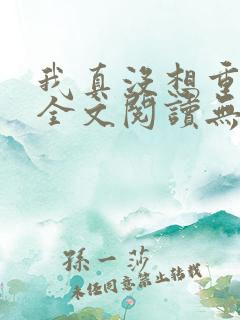 我真没想重
全文阅读无
孫一莎
未经同意禁止转载